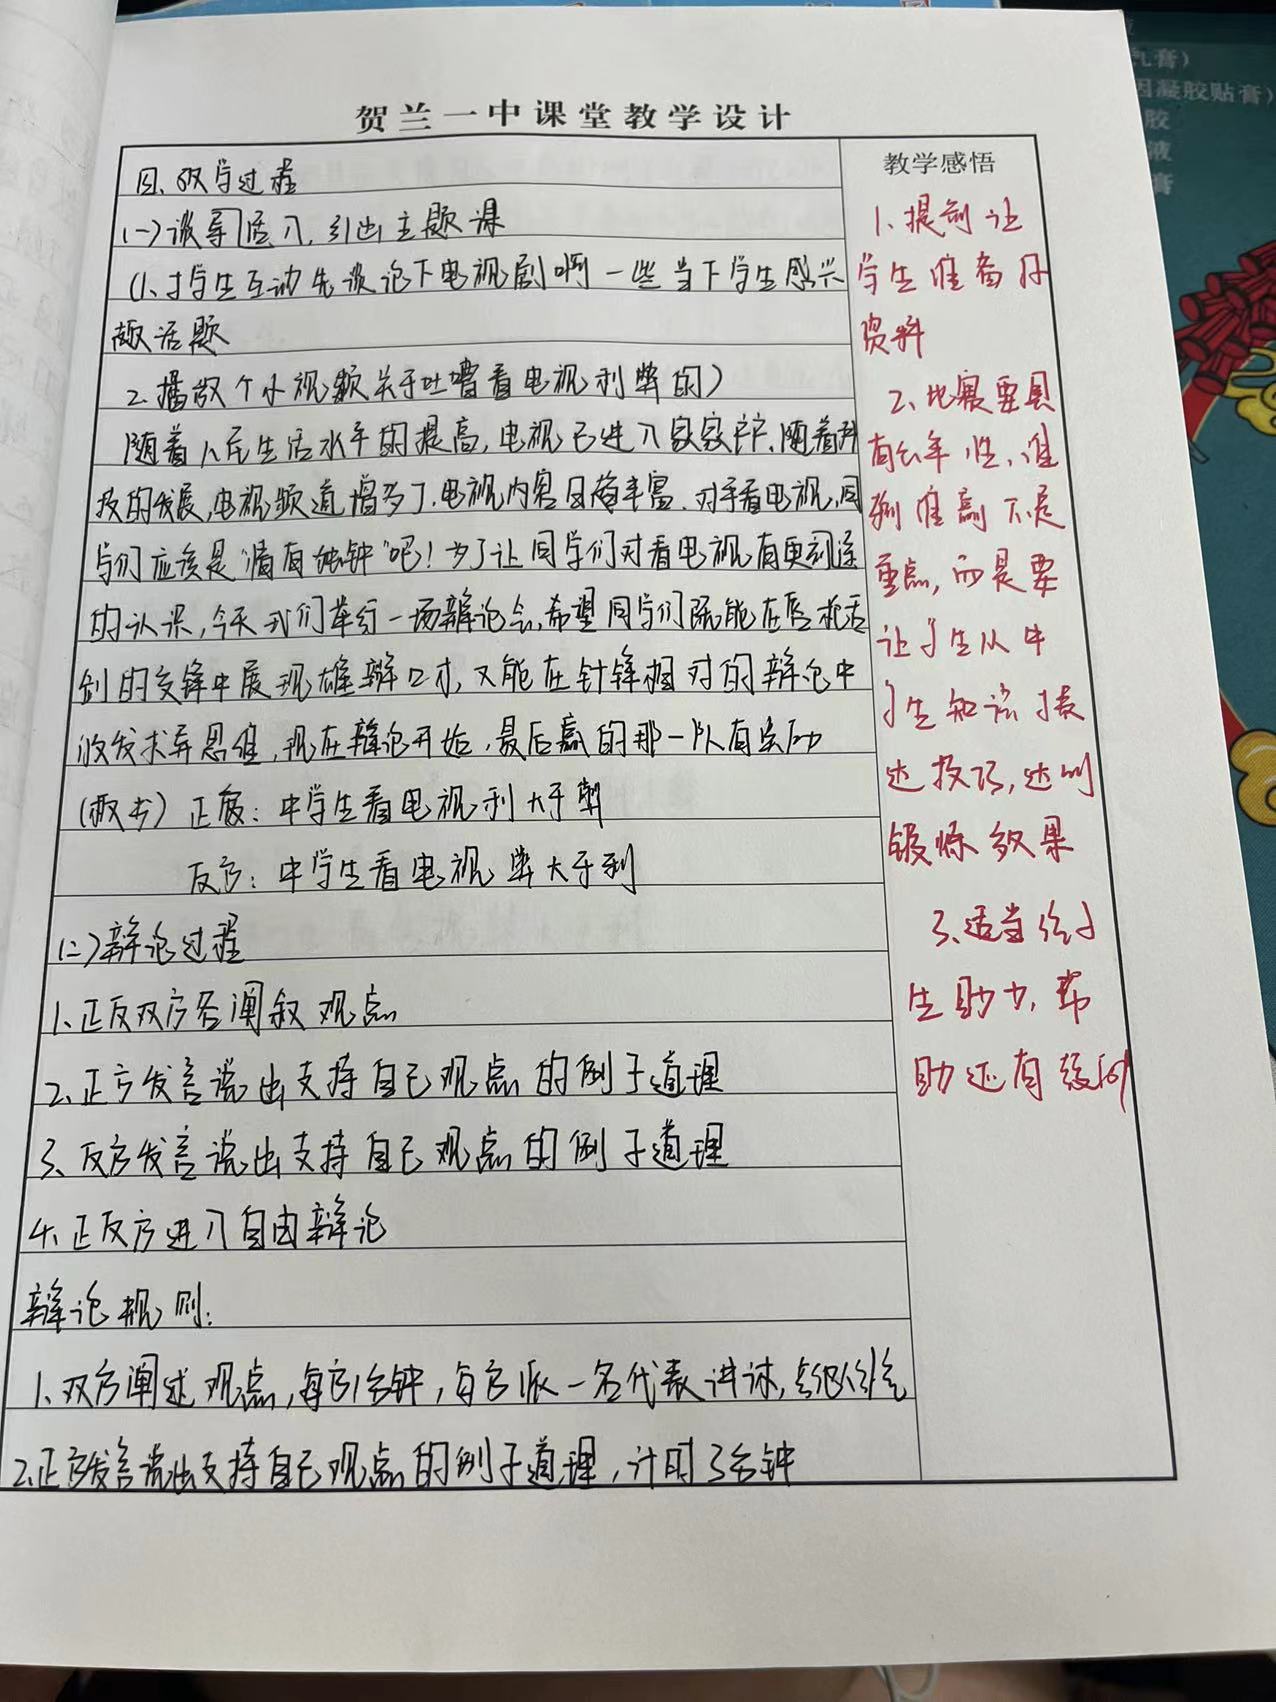 贺兰一中课堂教学设计
四、教学过程
(一)谈导语入,引出主题课
(1、与学生互动先谈论下电视剧啊一些当下学生感兴
趣话题
2.播放个小视频关于吐嘈看电视利弊的)
随着人民生活水平的提高,电视已进入家家户户.随着科
技的发展,电视频道增多了.电视内容日趋丰富.对于看电视,同
学们应该是"情有独钟"吧!为了让同学们对看电视有更深
的认识,今天我们举行一场辩论会,希望同学们既能在唇枪舌
剑的交锋中展现雄辩口才,又能在针锋相对的辩论中
激发求异思维,现在辩论开始,最后赢的那一队有奖励
(板书)正方:中学生看电视利大于弊
反方:中学生看电视弊大于利
(二)辩论过程
1、正反双方各阐叙观点
2、正方发言说出支持自己观点的例子道理
3、反方发言说出支持自己观点的例子道理
4、正反方进入自由辩论
辩论规则:
1、双方阐述观点,每方1分钟,每方派一名代表讲述,
2.正方发言说出支持自己观点的例子道理,计时3分钟
教学感悟
1、提前让
学生准备好
资料
2、比赛要具
有公平性,谁
输谁赢不是
重点,而是要
让学生从中
学生知识表
达技巧,达到
锻炼效果
3、适当给学
生助力,帮
助还有